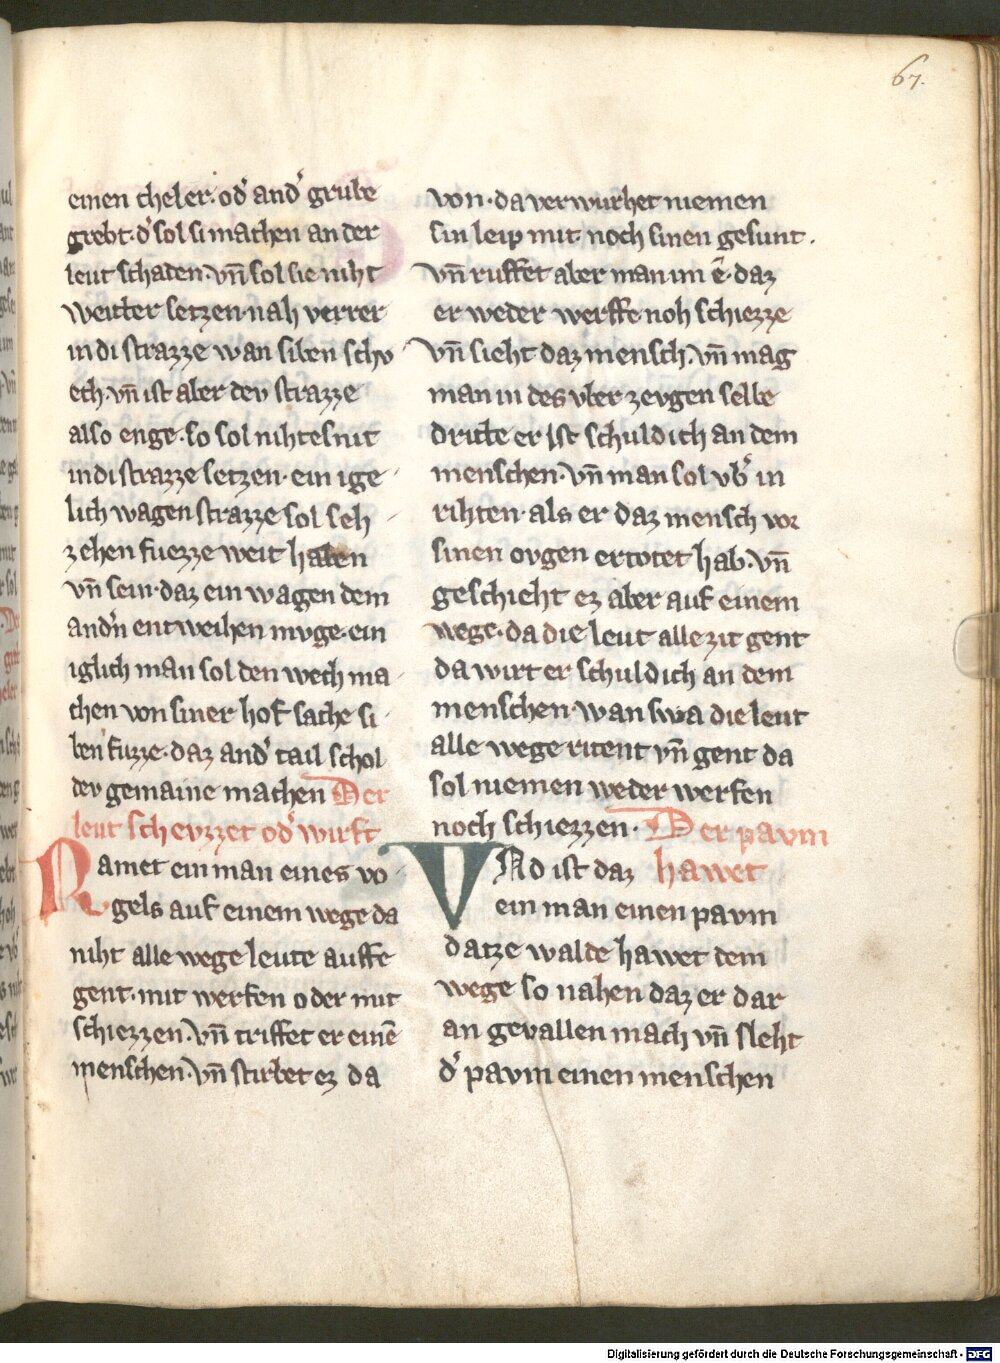 67.
einen cheler. od᾽ and᾽ grube
grebt. d᾽ sol si machen an der
leut schaden. vn̄ sol sie niht
weitter setzen. nah verrer
in di strazze wan siben schv
ech. vn̄ ist aber dev strazze
also enge. so sol niht es nit
in di strazze setzen. ein ige
lich wagen strazze sol seh
zehen fuezze weit haben
vn̄ sein. daz ein wagen dem
and᾽n entweihen mvge. ein
iglich man sol den wech ma
chen von siner hof sache si
ben fuzze. daz and᾽ tail schol
dev gemaine machen Der
leut schevzzet od᾽ wirft
Ramet ein man eines vo
gels auf einem wege da
niht alle wege leute auffe
gent. mit werfen oder mit
schiezzen. vn̄ triffet er einē
menschen. vn̄ stirbet ez da
von. da verwurhet niemen
sin leip mit noch sinen gesunt.
vn̄ ruffet aber man im ê. daz
er weder werffe noh schiezze
vn̄ sieht daz mensch. vn̄ mag
man in des vber zevgen selbe
dritte er ist schuldich an dem
menschen. vn̄ man sol vb᾽ in
rihten. als er daz mensch vor
sinen ovgen ertotet hab. vn̄
geschieht ez aber auf einem
wege. da die leut alle zit gent
da wirt er schuldich an dem
menschen. wan swa die leut
alle wege ritent vn̄ gent da
sol niemen weder werfen
noch schiezzen. Der pavm
hawet
VNd ist daz
ein man einen pavm
datze walde hawet dem
wege so nahen daz er dar
an gevallen mach vn̄ sleht
d᾽ pavm einen menschen
Digitalisierung gefördert durch die Deutsche Forschungsgemeinschaft - DFG